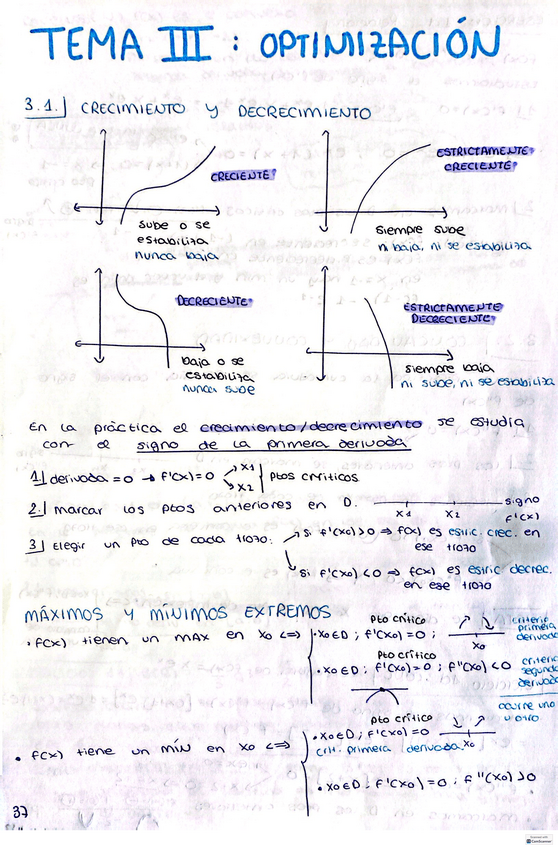 TEMA III : OPTIMIZACIÓN
3.1.| CRECIMIENTO y DECRECIMIENTO
CRECIENTE:
sube o se
estabiliza
nunca baja
ESTRICTAMENTE
CRECIENTE:
siempre sube
ni baja, ni se estabiliza
DECRECIENTE:
baja o se
estabiliza
nunca sube
ESTRICTAMENTE
DECRECIENTE:
siempre baja
ni sube, ni se estabiliza
En la práctica el crecimiento/decrecimiento se estudia
con el signo de la primera derivada
1.| derivada = 0 → f'(x) = 0 x1 x2 | ptos críticos
2.| marcar los ptos anteriores en D. x1 x2 signo f'(x)
3.| Elegir un pto de cada trozo: si f'(x0) > 0 ⇒ f(x) es estric. crec. en
ese trozo
si f'(x0) < 0 ⇒ f(x) es estric decrec.
en ese trozo
MÁXIMOS Y MÍNIMOS EXTREMOS
• f(x) tienen un MAX en x0 <=>
pto crítico
• x0 ∈ D ; f'(x0) = 0 ; x0
criterio
primera
derivada
pto crítico
• x0 ∈ D ; f'(x0) = 0 ; f''(x0) < 0
criterio
segunda
derivada
ocurre uno
u otro
• f(x) tiene un MÍN en x0 <=>
pto crítico
• x0 ∈ D ; f'(x0) = 0 x0
crit. primera derivada
• x0 ∈ D ; f'(x0) = 0 ; f''(x0) > 0
37
CamScanner